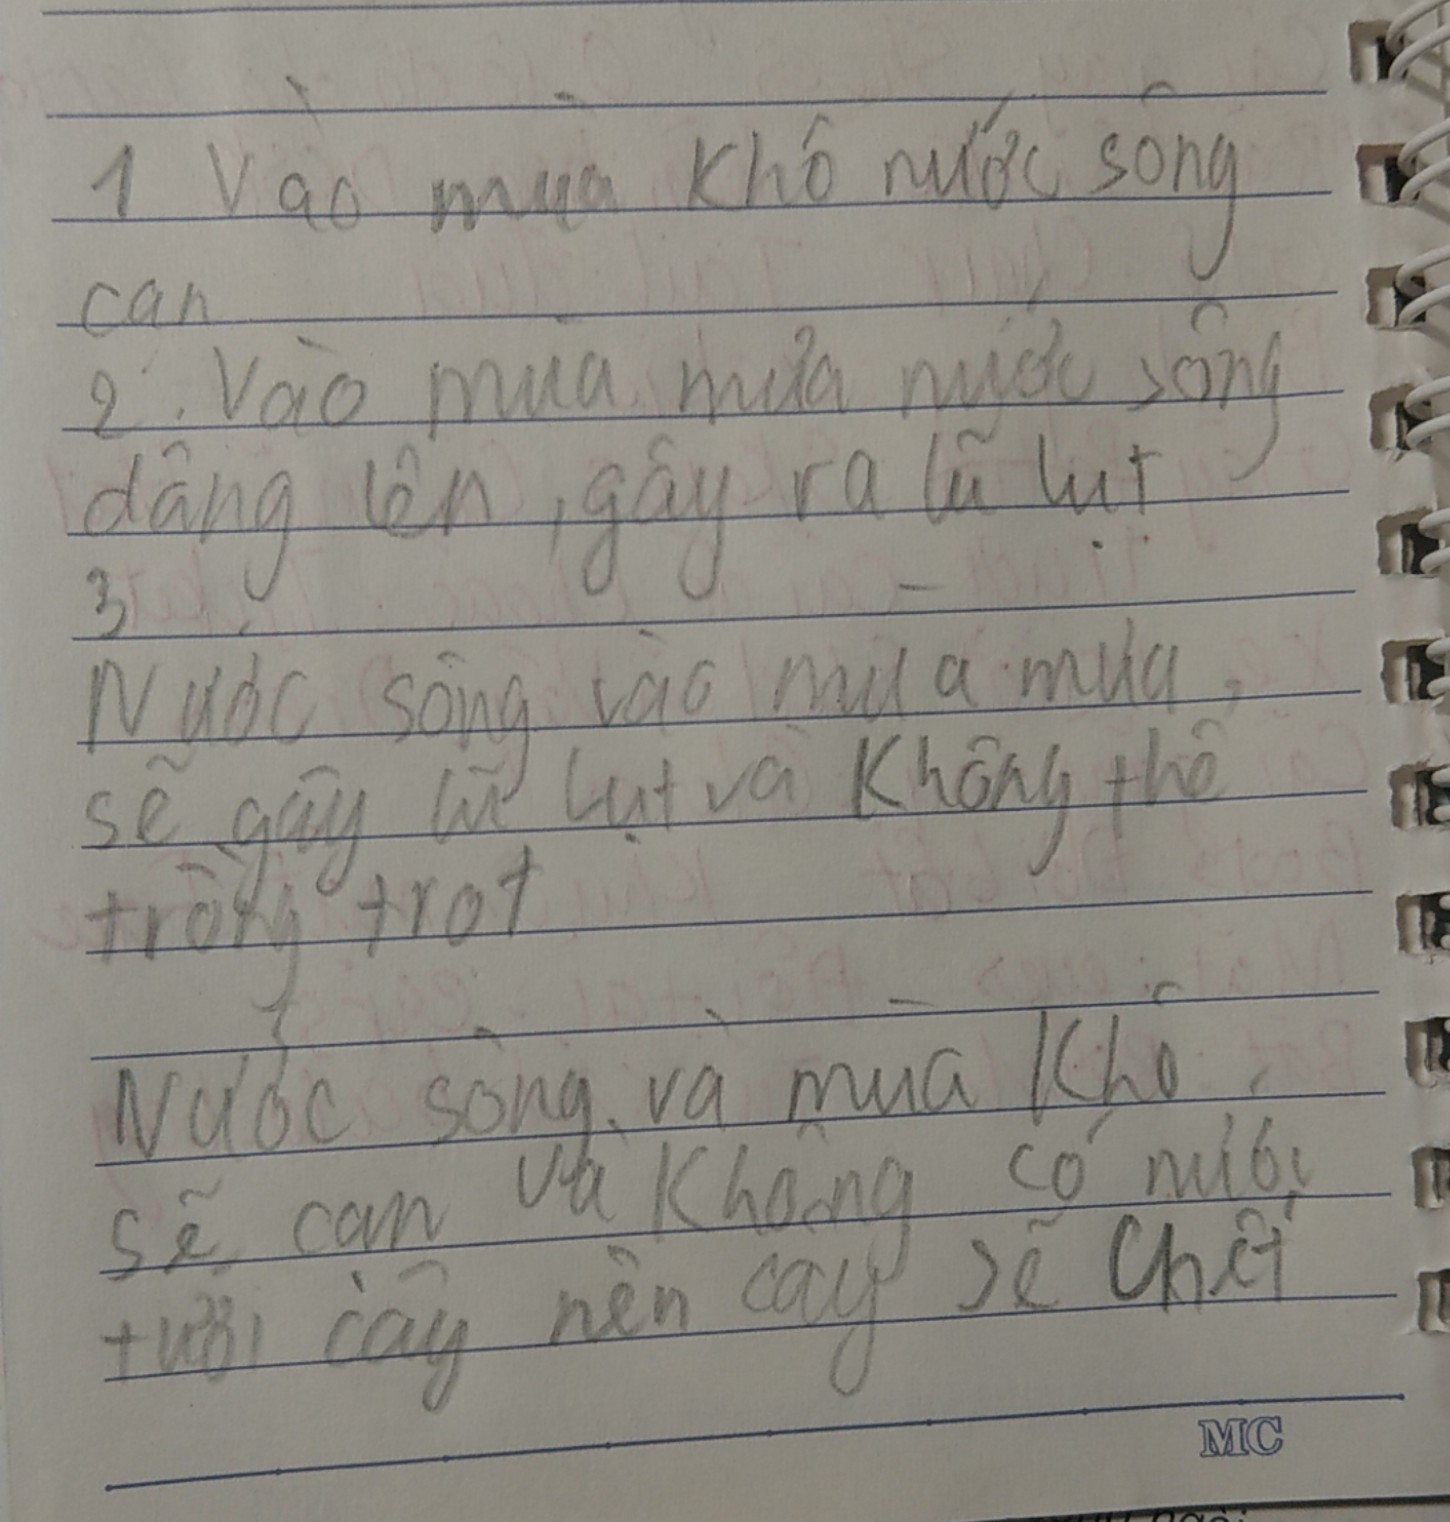 1 Vào mùa Khô nước sông
can
2. Vào mùa mưa nước sông
dâng lên, gây ra lũ lụt
3
Nước sông vào mùa mưa,
sẽ gây lũ lụt và Không thể
trồng trọt
Nước sông và mùa Khô,
sẽ cạn và Không có nước
tưới cây nên cây sẽ Chết
MC